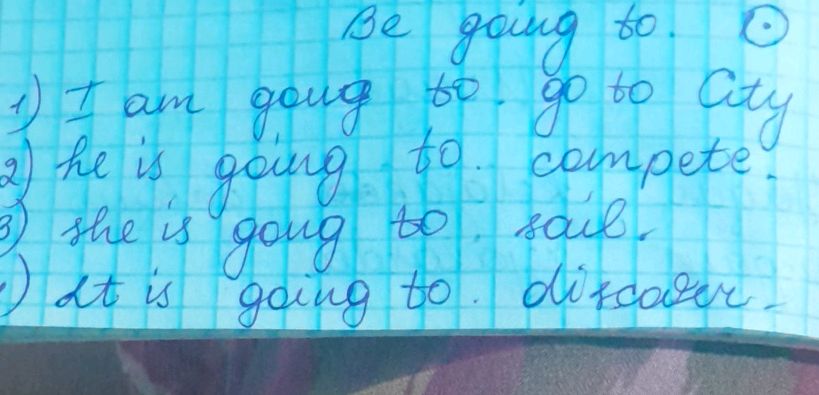 Be going to.
1) I am going to. go to City
2) he is going to. compete.
3) she is going to. sail.
) It is going to. discover.